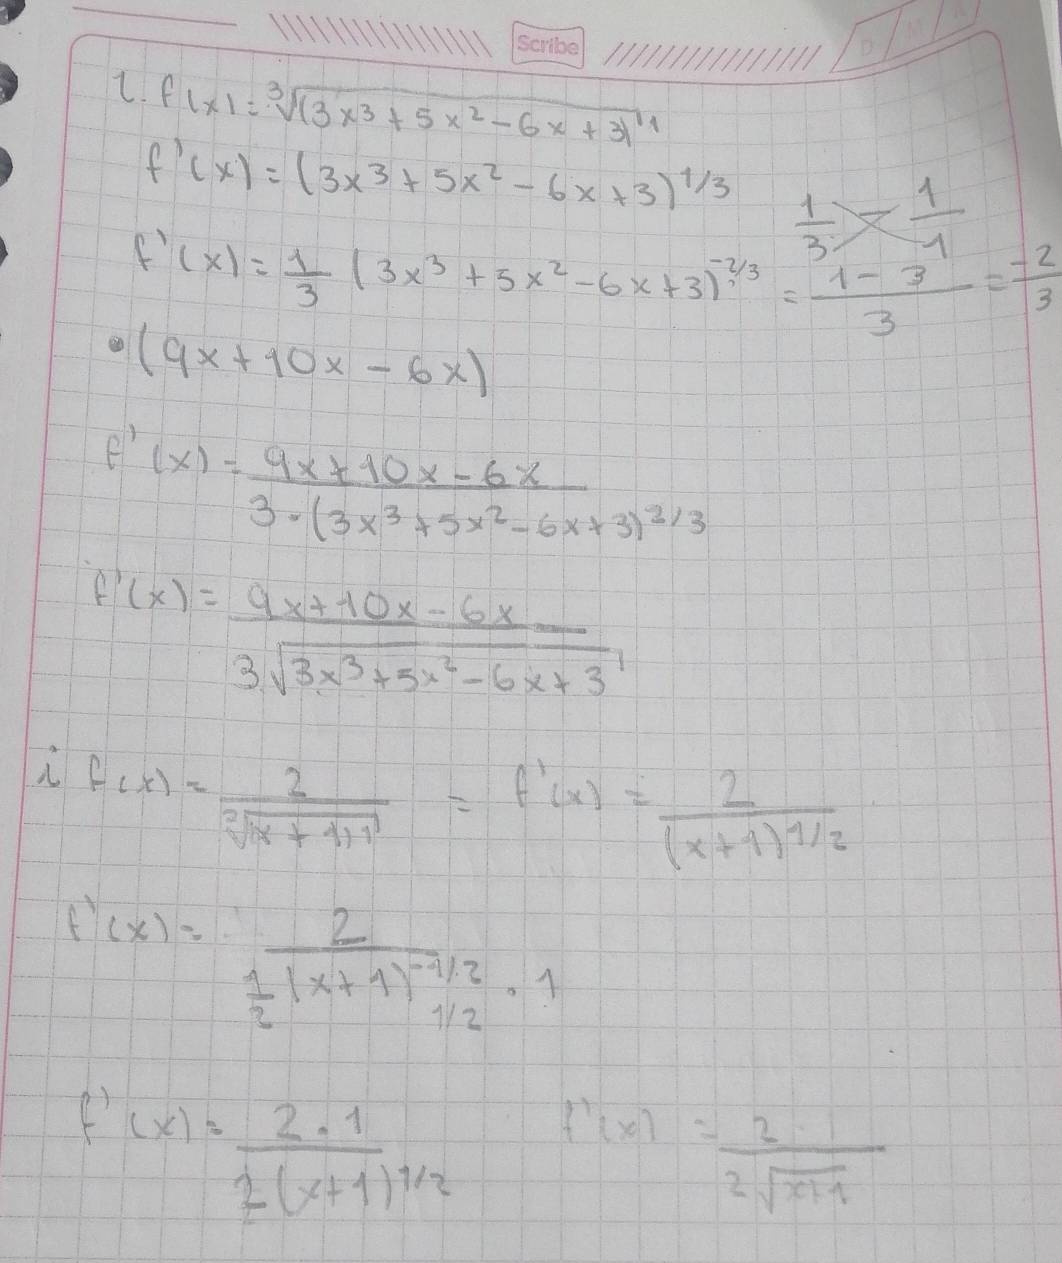 Scribe
D M A
i. f(x) = ∛(3x³ + 5x² - 6x + 3)¹
f'(x) = (3x³ + 5x² - 6x + 3)^1/3
1/3 - 1/1
f'(x) = 1/3 (3x³ + 5x² - 6x + 3)^-2/3 = 1 - 3 / 3 = -2/3
• (9x + 10x - 6x)
f'(x) = 9x + 10x - 6x / 3 · (3x³ + 5x² - 6x + 3)^2/3
f'(x) = 9x + 10x - 6x / 3√3x³ + 5x² - 6x + 3
i f(x) = 2 / ²√(x + 1)¹ = f'(x) = 2 / (x + 1)^1/2
f'(x) = 2 / 1/2 (x + 1)^-1/2 · 1
1/2
f'(x) = 2 · 1 / 2 (x + 1)^1/2 f'(x) = 2 / 2√x+1